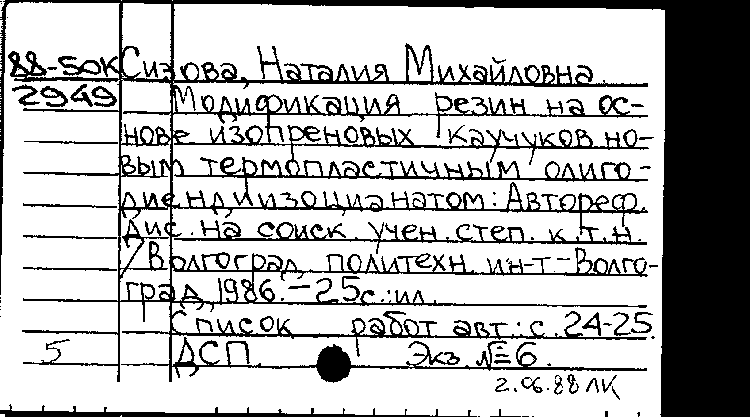 88-50К Сизова, Наталия Михайловна.
2949 Модификация резин на ос-
нове изопреновых каучуков но-
вым термопластичным олиго-
диендиизоцианатом: Автореф.
Дис. на соиск. учен. степ. к.т.н.
/ Волгоград. политехн. ин-т - Волго-
град, 1986. - 25с.: ил.
Список работ авт.: с. 24-25.
5 ДСП. Экз. №6.
2.06.88 ЛК